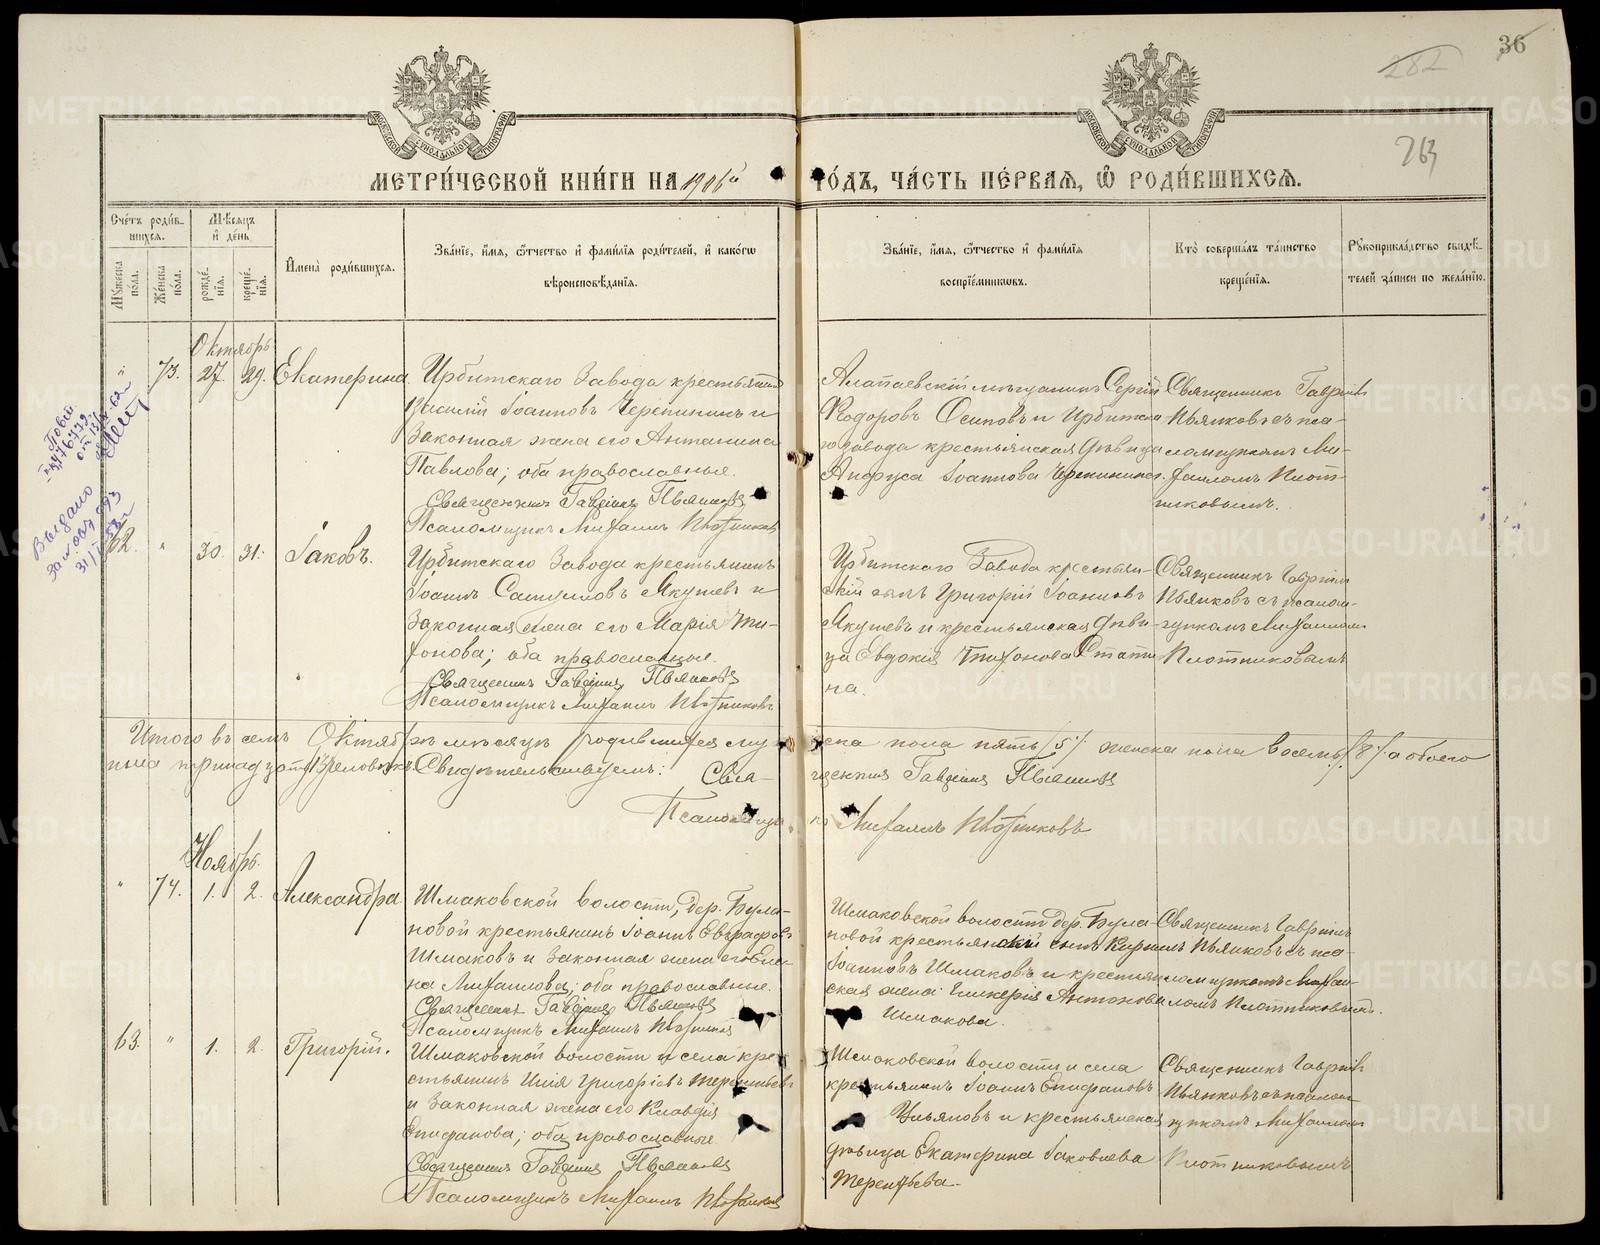 36
282
263
МОСКОВСКОЙ СУНОДАЛЬНОЙ ТИПОГРАФІИ
МОСКОВСКОЙ СУНОДАЛЬНОЙ ТИПОГРАФІИ
МЕТРИ́ЧЕСКОЙ КНИ́ГИ НА 1906й ГО́ДЪ, ЧА́СТЬ ПЕ́РВАЯ, Ѽ РОДИ́ВШИХСЯ.
Сче́тъ роди́в-
шихся.
Му́жеска по́ла.
Же́нска по́ла.
Мѣ́сяцъ
и҆ де́нь
рожде́-
нїя.
креще́-
нїя.
И҆мена̀ роди́вшихся.
Зва́нїе, и҆́мя, ѻ҆́тчество и҆ фами́лїя роди́телей, и҆ како́гѡ
вѣроисповѣ́данїя.
Зва́нїе, и҆́мя, ѻ҆́тчество и҆ фами́лїя
воспрїе́мниковъ.
Кто̀ соверша́лъ та́инство
креще́нїя.
Рꙋкоприкла́дство свидѣ́-
телей за́писи по жела́нїю.
Октябрь
" 73. 27. 29. Екатерина
Ирбитскаго Завода крестьянинъ
Василій Іоанновъ Черепининъ и
Законная жена его Антонина
Павлова; оба православные.
Священникъ Гавріилъ Пьянковъ
Псаломщикъ Михаилъ Плотниковъ
Алапаевскій мѣщанинъ Сергій
Ѳеодоровъ Осиповъ и Ирбитска
го завода крестьянская дѣвица
Іоаннова Черепинина.
Священникъ Гавріилъ
Пьянковъ съ пса-
ломщикомъ Ми-
хаиломъ Плот-
никовымъ.
Выдано
31/
62. " 30. 31. Іаковъ.
Ирбитскаго Завода крестьянинъ
Іоаннъ Самуиловъ Якушевъ и
Законная жена его Марія Три-
фонова; оба православные.
Священникъ Гавріилъ Пьянковъ
Псаломщикъ Михаилъ Плотниковъ
Ирбитскаго Завода крестьян-
скій сынъ Григорій Іоанновъ
Якушевъ и крестьянская дѣви-
ца Евдокія Трифонова Стати
на.
Священникъ Гавріилъ
Пьянковъ съ псалом-
щикомъ Михаиломъ
Плотниковымъ
Итого въ семъ Октябрѣ мѣсяцѣ родившихся мужеска пола пять /5/ женска пола восемь /8/ а обоего
пола тринадцать /13/ человѣкъ. Свидѣтельствуемъ: Священникъ Гавріилъ Пьянковъ
Псаломщикъ Михаилъ Плотниковъ
Ноябрь.
" 74. 1. 2. Александра
Шмаковской волости, дер. Була-
новой крестьянинъ Іоаннъ Евграфовъ
Шмаковъ и Законная жена его Еле-
на Михаилова; оба православные.
Священникъ Гавріилъ Пьянковъ
Псаломщикъ Михаилъ Плотниковъ
Шмаковской волости дер. Була
новой крестьянскій сынъ Кириллъ
Іоанновъ Шмаковъ и крестьян
ская жена Гликерія Антонова
Шмакова.
Священникъ Гавріилъ
Пьянковъ съ пса-
ломщикомъ Михаи-
ломъ Плотниковымъ.
63. " 1. 2. Григорій.
Шмаковской волости и села кре-
стьянинъ Илія Григоріевъ Терентьевъ
и Законная жена его Клавдія
Епифанова; оба православные
Священникъ Гавріилъ Пьянковъ
Псаломщикъ Михаилъ Плотниковъ
Шмаковской волости и села
крестьянинъ Іоаннъ Епифановъ
Ульяновъ и крестьянская
дѣвица Екатерина Іаковлева
Терентьева.
Священникъ Гавріилъ
Пьянковъ съ псалом-
щикомъ Михаиломъ
Плотниковымъ
METRIKI.GASO-URAL.RU